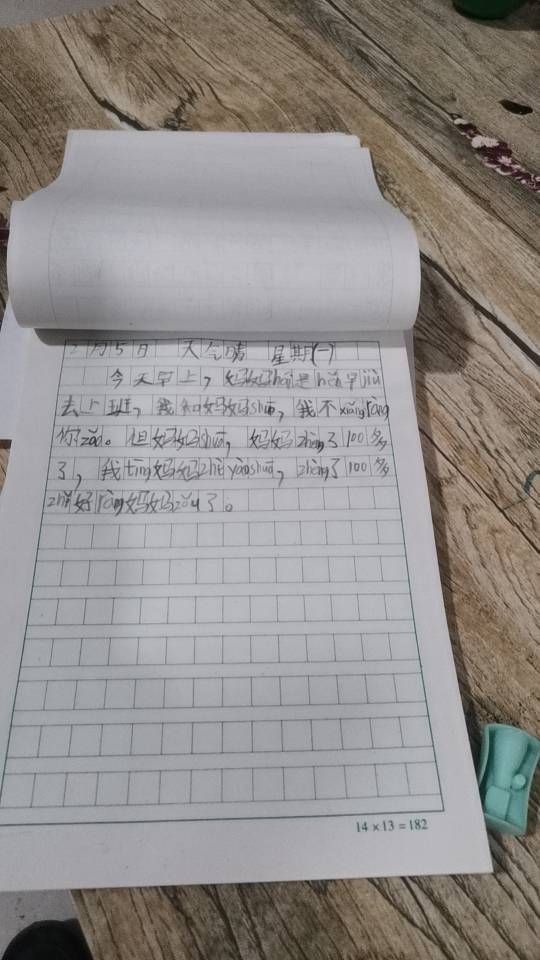 月5日 天气晴 星期(一)
今天早上，妈妈hái是hěn早jiù
去上班，我和妈妈shuō，我不xiǎngràng
你zǒu。但妈妈shuō，妈妈zhèng了100多
了，我tīng妈妈zhè yàoshuō，zhèng了100多
zhǐ好ràng妈妈zǒu了。
14×13=182